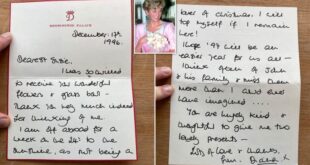 KENSINGTON PALACE
December 17th
1996.
Dearest Susie,
I was so touched
to receive the wonderful
flowers & glass bowl -
thank you very much indeed for
thinking of me.
I am off abroad for a
week on the 24th to the
sunshine, as not being a
lover of christmas, I will
top myself if I remain
here!
I hope '97 will be an
easier year for us all -
I think often of John
& his family & miss them
more than I could ever
have imagined ....
You are truly kind &
thoughtful to give me two
lovely presents -
Lots of love & thanks,
from Diana x